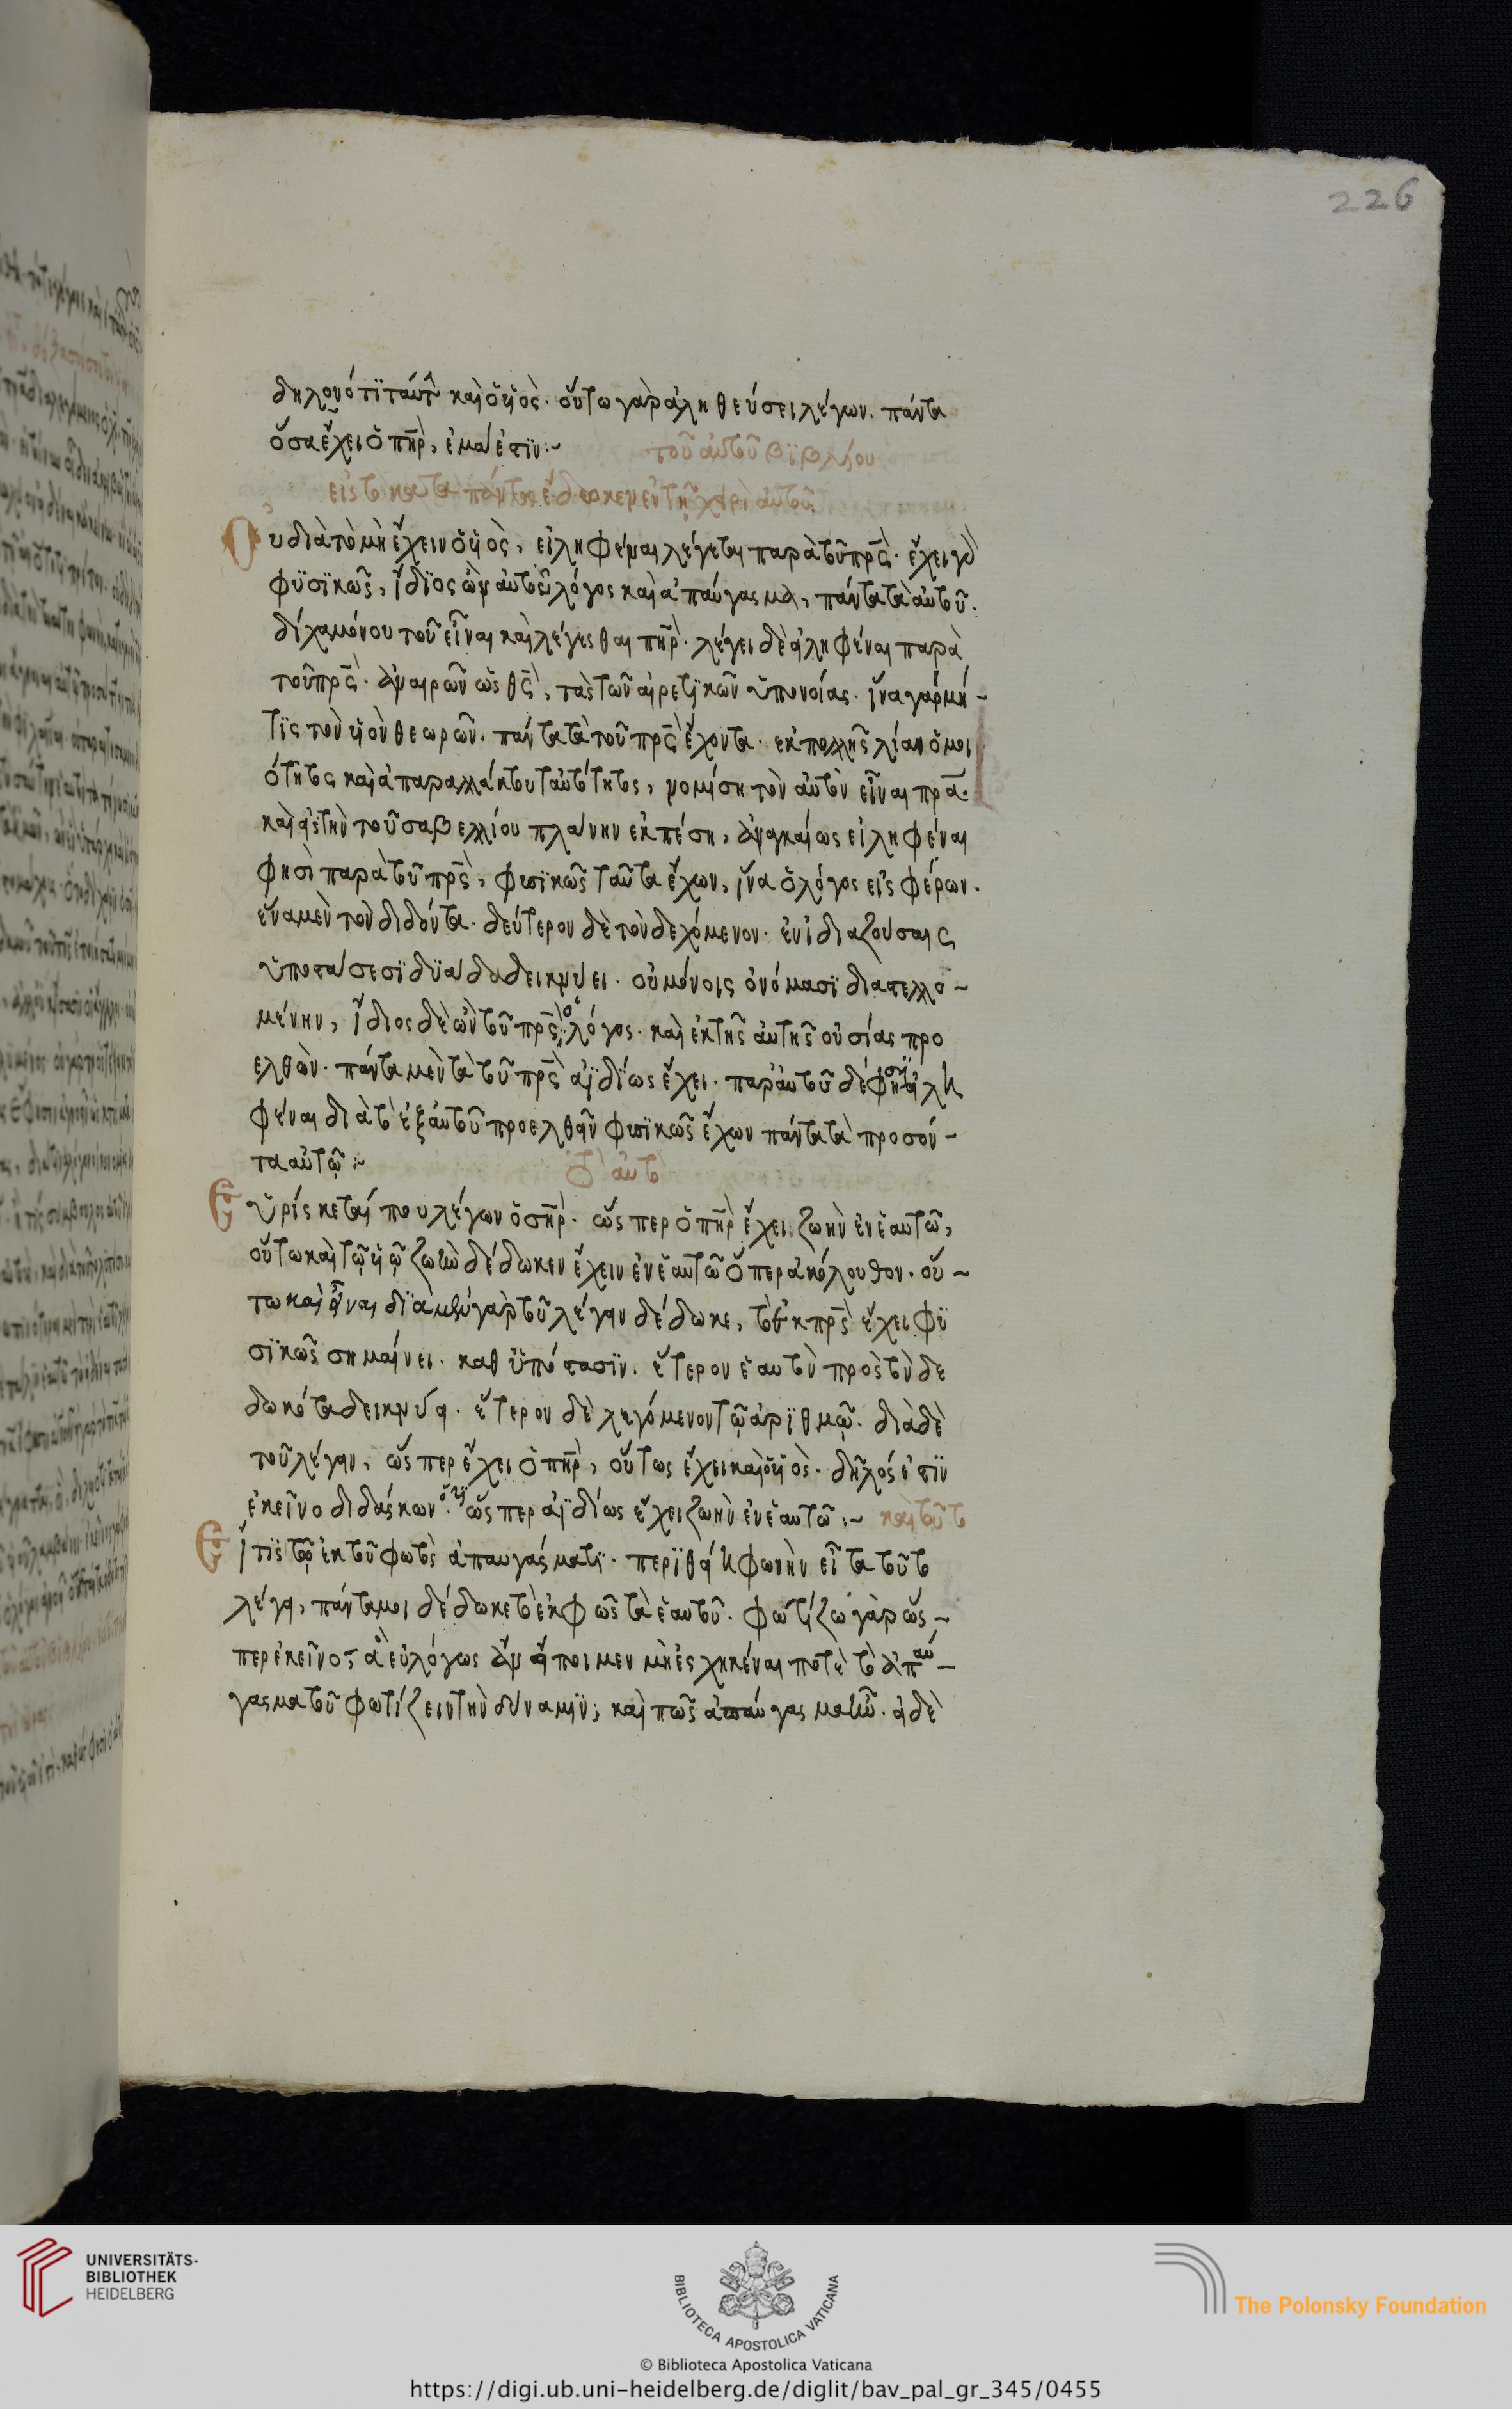 226
δηλονότϊ ταῦτ καὶ ὁ ϋἱὸς. οὕτω γὰρ ἀληθεύσει λέγων. πάντα
ὅσα ἔχει ὁ πηρ, ἐμά ἐστϊν :~ τοῦ αὐτοῦ βϊβλίου
εἰς τὸ κατὰ πάντα ἔδωκεν ἐν τῆ χειρὶ αὐτοῦ
Οὐ διὰ τὸ μὴ ἔχειν ὁ ϋἱὸς, εἰληφέναι λέγεται παρὰ τοῦ πρς. ἔχει γὰρ
φϋσϊκῶς, ἴδϊος ὢν αὐτοῦ λόγος καὶ ἀπαύγασμα, πάντα τὰ αὐτοῦ.
δίχα μόνου τοῦ εἶναι καὶ λέγεσθαι πηρ. λέγει δὲ εἰληφέναι παρὰ
τοῦ πρς. ἀναιρῶν ὡς θς, τὰς τῶν αἱρετϊκῶν ὑπονοίας. ἵνα γὰρ μή-
τϊς τὸν ϋἱὸν θεωρῶν. πάντα τὰ τοῦ πρς ἔχοντα. ἐκ πολλῆς λίαν ὁμοι
ότητος καὶ ἀπαραλλάκτου ταυτότητος, νομίση τὸν αὐτὸν εἶναι πρα.
καὶ εἰς τὴν τοῦ σαβελλίου πλάνην ἐκπέση, ἀναγκαίως εἰληφέναι
φησὶ παρὰ τοῦ πρς, φυσϊκῶς ταῦτα ἔχων, ἵνα ὁ λόγος εἰσφέρων.
ἕνα μὲν τὸν διδόντα. δεύτερον δὲ τὸν δεχόμενον. ἐν ἰδιαζούσαις
ὑποστάσεσϊ δϋάδα δεικνύει. οὐ μόνοις ὀνόμασϊ διαστελλο-
μένην, ἴδιος δὲ ὢν τοῦ πρς ὁ λόγος. καὶ ἐκ τῆς αὐτῆς οὐσίας προ
ελθὼν. πάντα μὲν τὰ τοῦ πρς ἀϊδίως ἔχει. παρ' αὐτοῦ δέ φησϊν εἰλη
φέναι διὰ τὸ ἐξ αὐτοῦ προελθεῖν φυσϊκῶς ἔχων πάντα τὰ προσόν-
τα αὐτῶ :~ Τοῦ αὐτοῦ
Εὑρίσκεταί που λέγων ὁ σηρ. ὥσπερ ὁ πηρ ἔχει ζωὴν ἐν ἑαυτῶ,
οὕτω καὶ τῶ ϋἱῶ ζωὴν δέδωκεν ἔχειν ἐν ἑαυτῶ ὅπερ ἀκόλουθον. οὕ-
τω καὶ εἶναι δϊὰ μὲν γὰρ τοῦ λέγειν δέδωκε, τὸ ἐκ πρς ἔχει φϋ
σϊκῶς σημαίνει. καθ' ὑπόστασϊν. ἕτερον ἑαυτὸν πρὸς τὸν δε
δωκότα δεικνύει. ἕτερον δὲ λεγόμενον τῶ ἀρϊθμῶ. διὰ δὲ
τοῦ λέγειν, ὥσπερ ἔχει ὁ πηρ, οὕτως ἔχει καὶ ὁ ϋἱὸς. δῆλός ἐστϊν
ἐκεῖνο διδάσκων ὅτϊ ὥσπερ ἀϊδίως ἔχει ζωὴν ἐν ἑαυτῶ :~ καὶ τοῦτο
Εἴ τϊς τῶ ἐκ τοῦ φωτὸς ἀπαυγάσματϊ. περϊθείη φωνὴν εἶτα τοῦτο
λέγει, πάντα μοι δέδωκε τὸ ἐκ φῶς τὰ ἑαυτοῦ. φωτίζω γὰρ ὥσ-
περ ἐκεῖνος ἆρ εὐλόγως ἂν εἴποιμεν μὴ ἐσχηκέναι ποτὲ τὸ ἀπαύ-
γασμα τοῦ φωτίζειν τὴν δύναμϊν; καὶ πῶς ἀπαύγασμα . εἰ δὲ
UNIVERSITÄTS-
BIBLIOTHEK
HEIDELBERG
BIBLIOTECA APOSTOLICA VATICANA
The Polonsky Foundation
© Biblioteca Apostolica Vaticana
https://digi.ub.uni-heidelberg.de/diglit/bav_pal_gr_345/0455